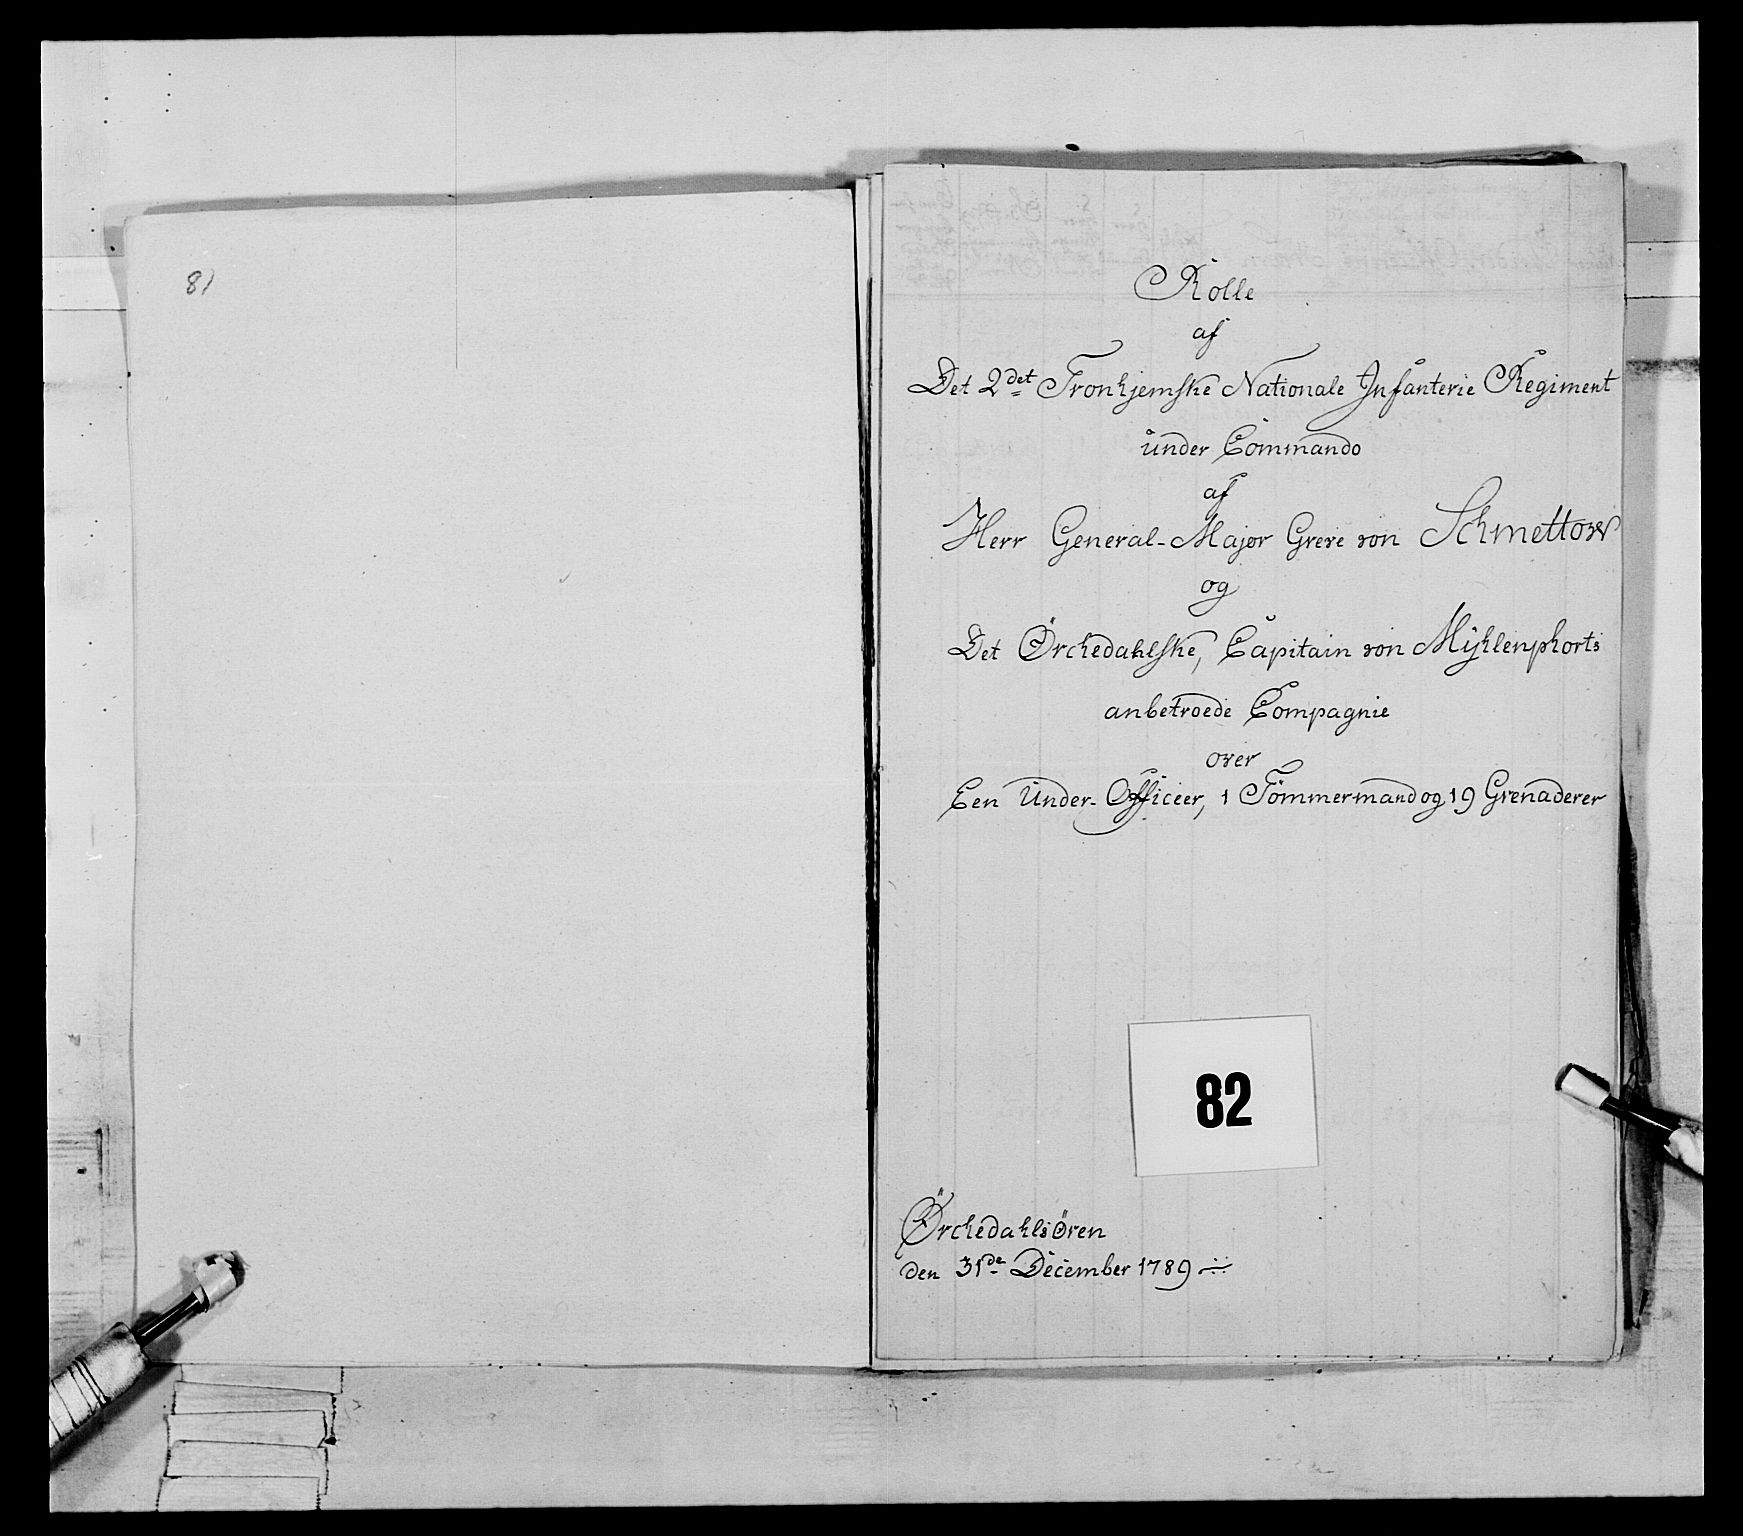 81
Rolle
af
Det 2det Tronhjemske Nationale Infanterie Regiment
under Commando
af
Herr General-Major Greve von Schmettow
og
Det Örchedahlske, Capitain von Mÿhlenphorts
anbetroede Compagnie
over
Een Under-Officeer, 1 Tömmermand og 19 Grenaderer
82
ÖrchedahlsÖren
den 31de December 1789